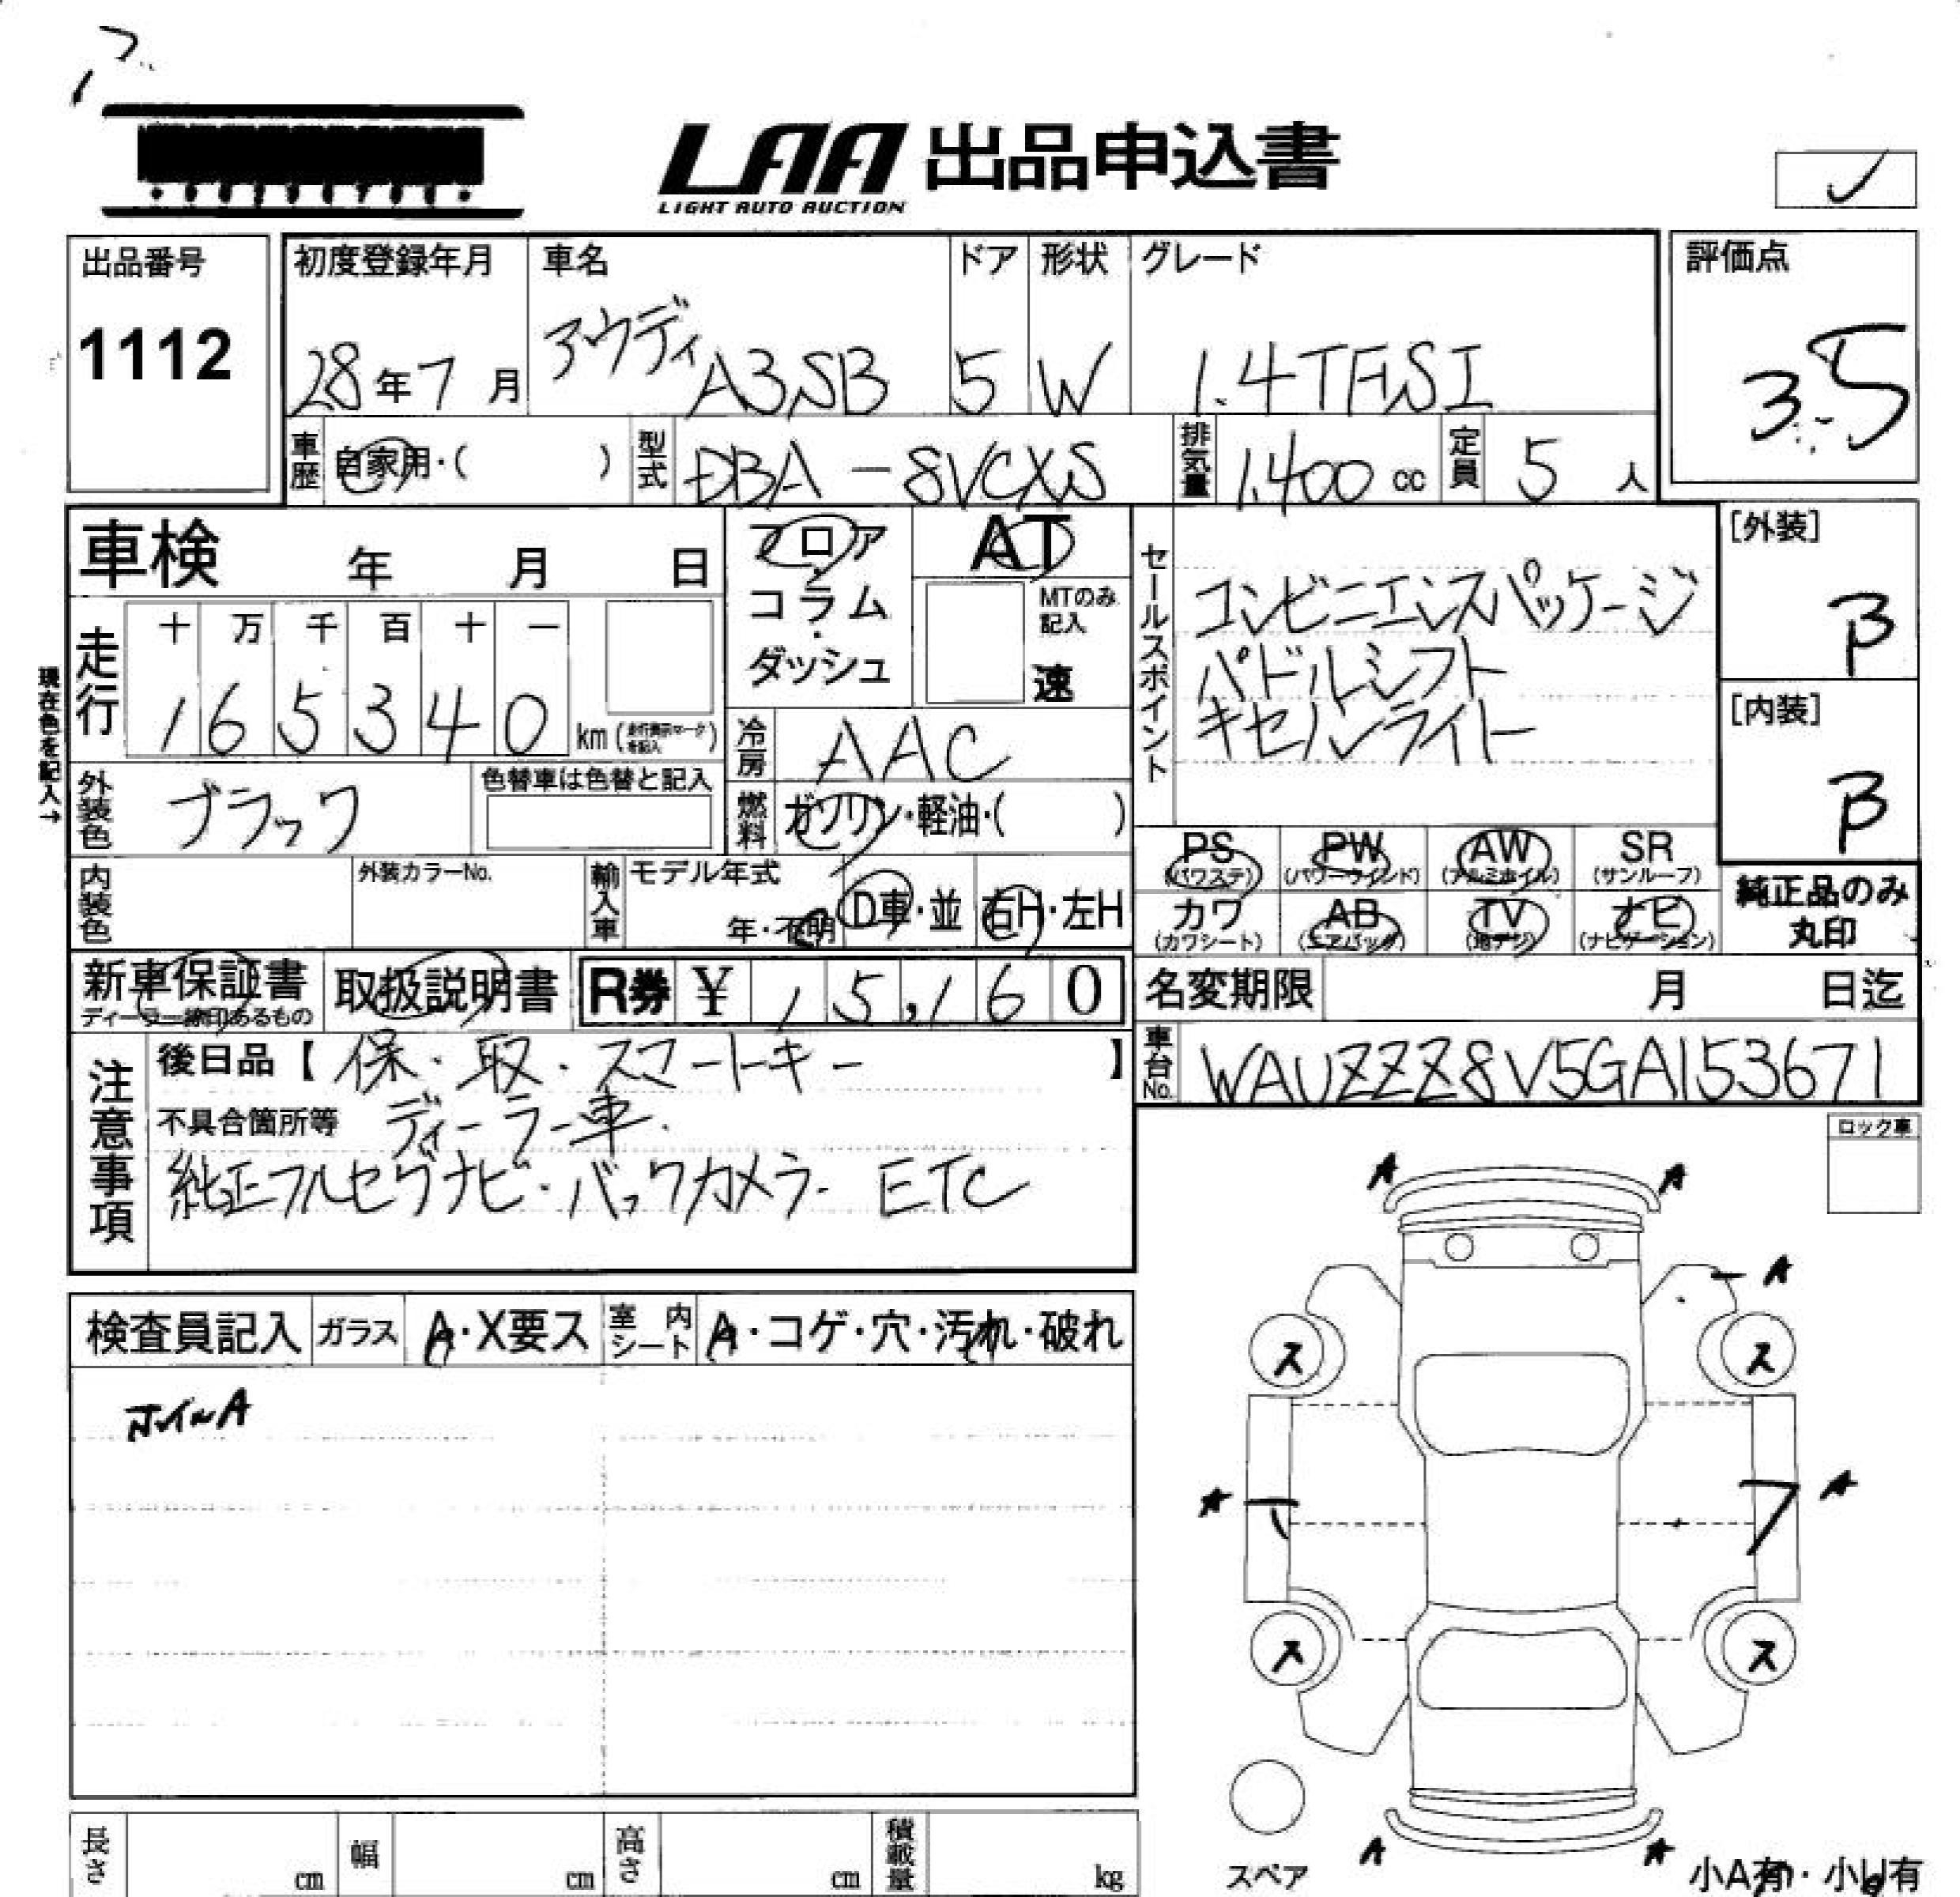 LAA 出品申込書
LIGHT AUTO AUCTION
出品番号
1112
初度登録年月
28年7月
車名
アウディ A3SB
ドア
5
形状
W
グレード
1.4TFSI
評価点
3.5
車歴
自家用・( )
型式
DBA-8VCXS
排気量
1.400 cc
定員
5 人
車検 年 月 日
フロア・コラム・ダッシュ
AT
MTのみ記入
速
セールスポイント
コンビニエンスパッケージ
パドルシフト
キセノンライト
[外装]
B
[内装]
B
現在色を記入→
走行
十 万 千 百 十 一
1 6 5 3 4 0 km
冷房
AAC
外装色
ブラック
色替車は色替と記入
燃料
ガソリン・軽油・( )
PS (パワステ)
PW (パワーウインド)
AW (アルミホイル)
SR (サンルーフ)
カワ (カワシート)
AB (エアバッグ)
TV (地デジ)
ナビ (ナビゲーション)
純正品のみ
丸印
内装色
外装カラーNo.
輸入車
モデル年式
年・不明
D車・並
右H・左H
新車保証書
ディーラー捺印あるもの
取扱説明書
R券 ¥ 15,160
名変期限 月 日迄
車台No.
WAUZZZ8V5GA153671
注意事項
後日品【保・取・スマートキー】
不具合箇所等 ディーラー車.
純正フルセグナビ・バックカメラ・ETC
ロック車
検査員記入
ガラス
A・X要ス
室内シート
A・コゲ・穴・汚れ・破れ
ホイールA
A A
A
ス ス
A A
ス ス
A A
スペア
小A有・小U有
長さ cm
幅 cm
高さ cm
積載量 kg